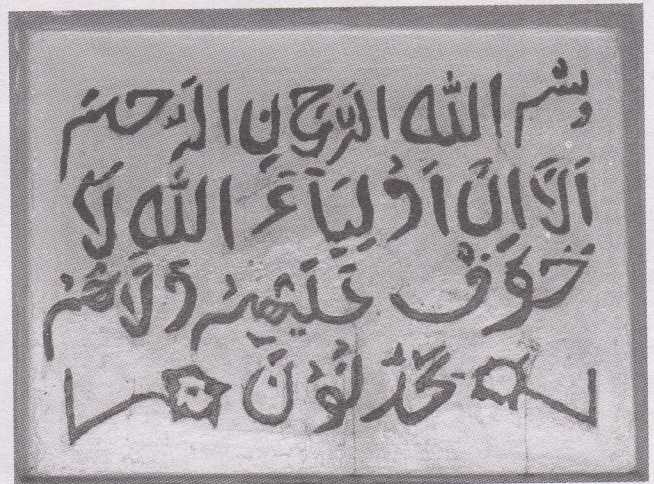 بِسْمِ اللّٰهِ الرَّحْمٰنِ الرَّحِيْمِ
اَلَآ اِنَّ اَوْلِيَآءَ اللّٰهِ لَا
خَوْفٌ عَلَيْهِمْ وَلَا هُمْ
يَحْزَنُوْنَ